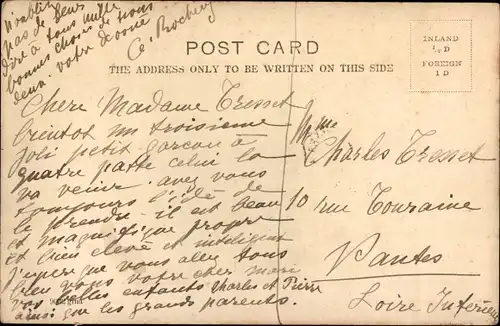 N'oubliez
pas de
dire à tous mille
bonnes choses de nous
deux. votre
Ce. Rocher
POST CARD
THE ADDRESS ONLY TO BE WRITTEN ON THIS SIDE
INLAND
½ D
FOREIGN
1 D
Chere Madame Tresset
bientot un troisieme
joli petit garcon à
quatre patte celui la
va venir. avez vous
toujours l'idé de
le prendre. il est beau
et magnifique propre
et bien elevé et inteligent
J'espere que vous allez tous
bien vous votre cher mari
vos belles enfants Charles et Pierre
ainsi que les grands parents.
Mme
Charles Tresset
10 rue Touraine
Nantes
Loire Inferieure